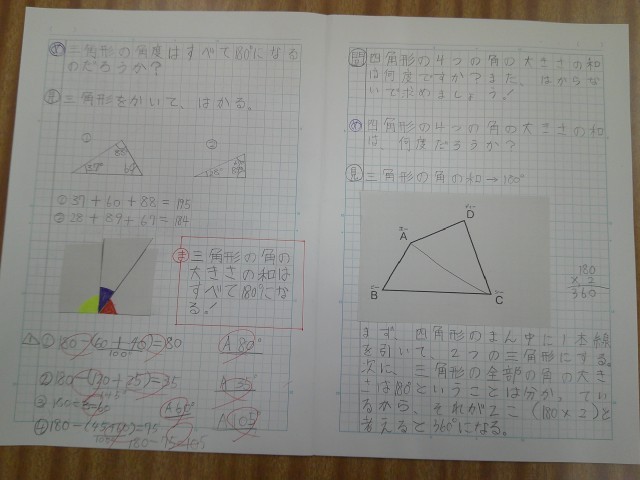 め 三角形の角度はすべて180°になる
のだろうか?
見 三角形をかいて、はかる。
①
②
37°
60
28°
① 37+60+88=195
② 28+89+67=184
ま 三角形の角の
大きさの和は
すべて180°にな
る!
① 180-(60+40)=80
100°
A 80°
② 180-(110+35)=35
A 35°
③ 180÷3=60
A 60°
180-75=105
A 105°
問 四角形の4つの角の大きさの和
は何度ですか?また、はからな
いで求めましょう!
め 四角形の4つの角の大きさの和
は、何度だろうか?
見 三角形の角の和→180°
D
A
B
C
180
× 2
360
まず、四角形のまん中に1本線
を引いて、2つの三角形にする。
次に、三角形の全部の角の大き
さは180°ということは分かってい
るから、それが2こ(180×2)と
考えると360°になる。